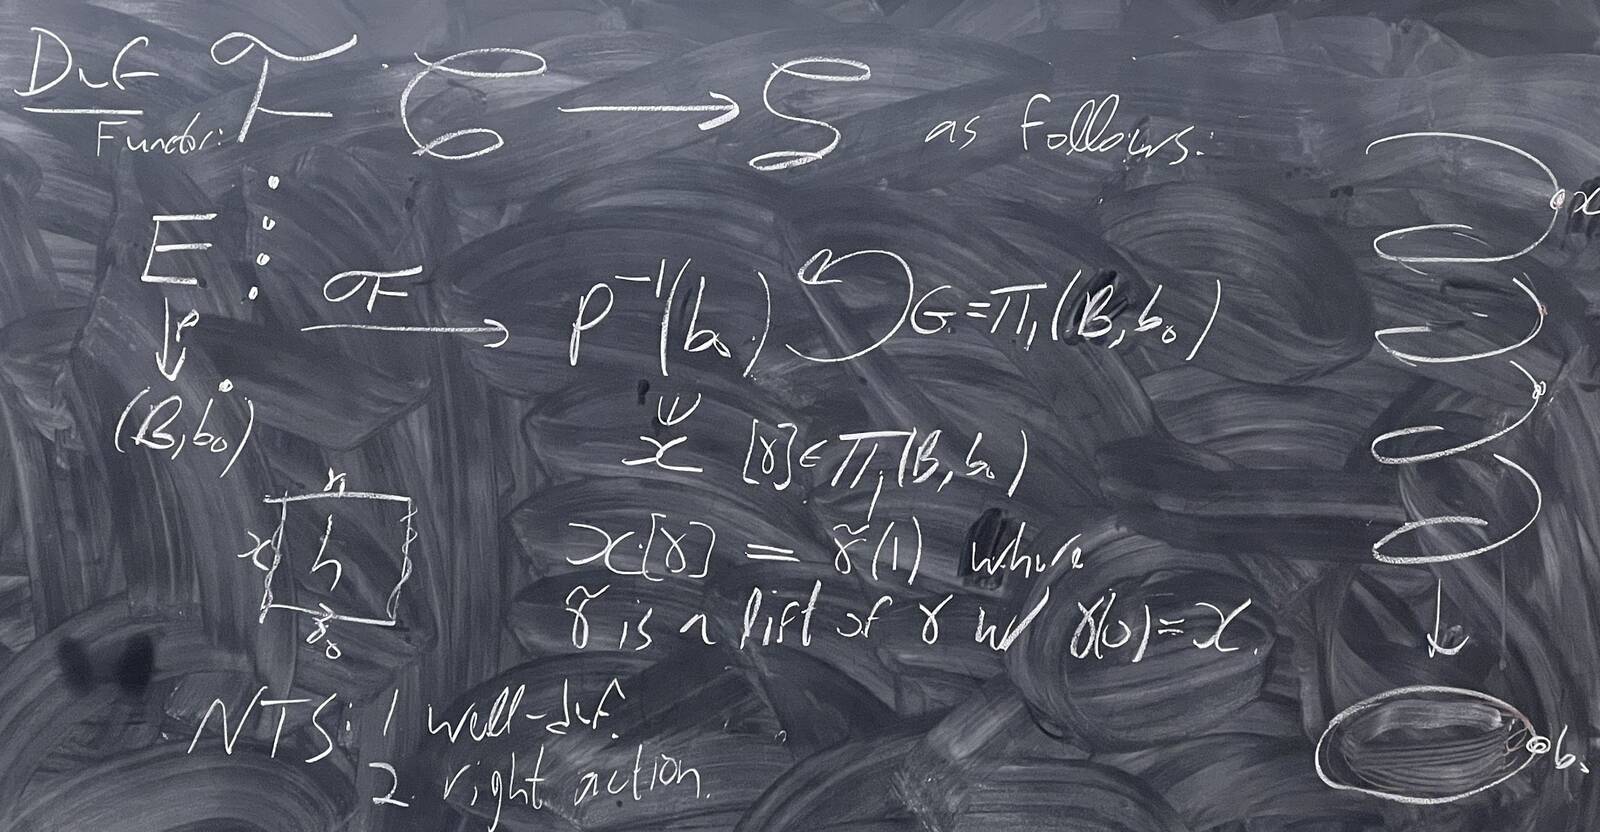 Def
Functor: F : C → S as follows:
E
↓p
(B, b₀)
F
→
p⁻¹(b₀) ↺ G = π₁(B, b₀)
x [γ] ∈ π₁(B, b₀)
x·[γ] = γ̃(1) where
γ̃ is a lift of γ w/ γ(0) = x.
γ₁
x h
γ₀
NTS: 1 well-def.
2. right action.
x
b₀